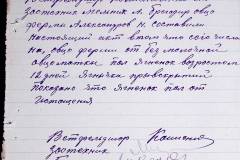 зоотехник Мемлик А. бригадир овце
фермы Александров Н. составили
настоящий акт в том что сего числа
на, овце ферми от без молочной
овцематки пал ягненок возрастом
12 дней Ягнёчка при вскрытий
показано что ягненок пал от
истощения
Ветфельдшер
Зоотехник